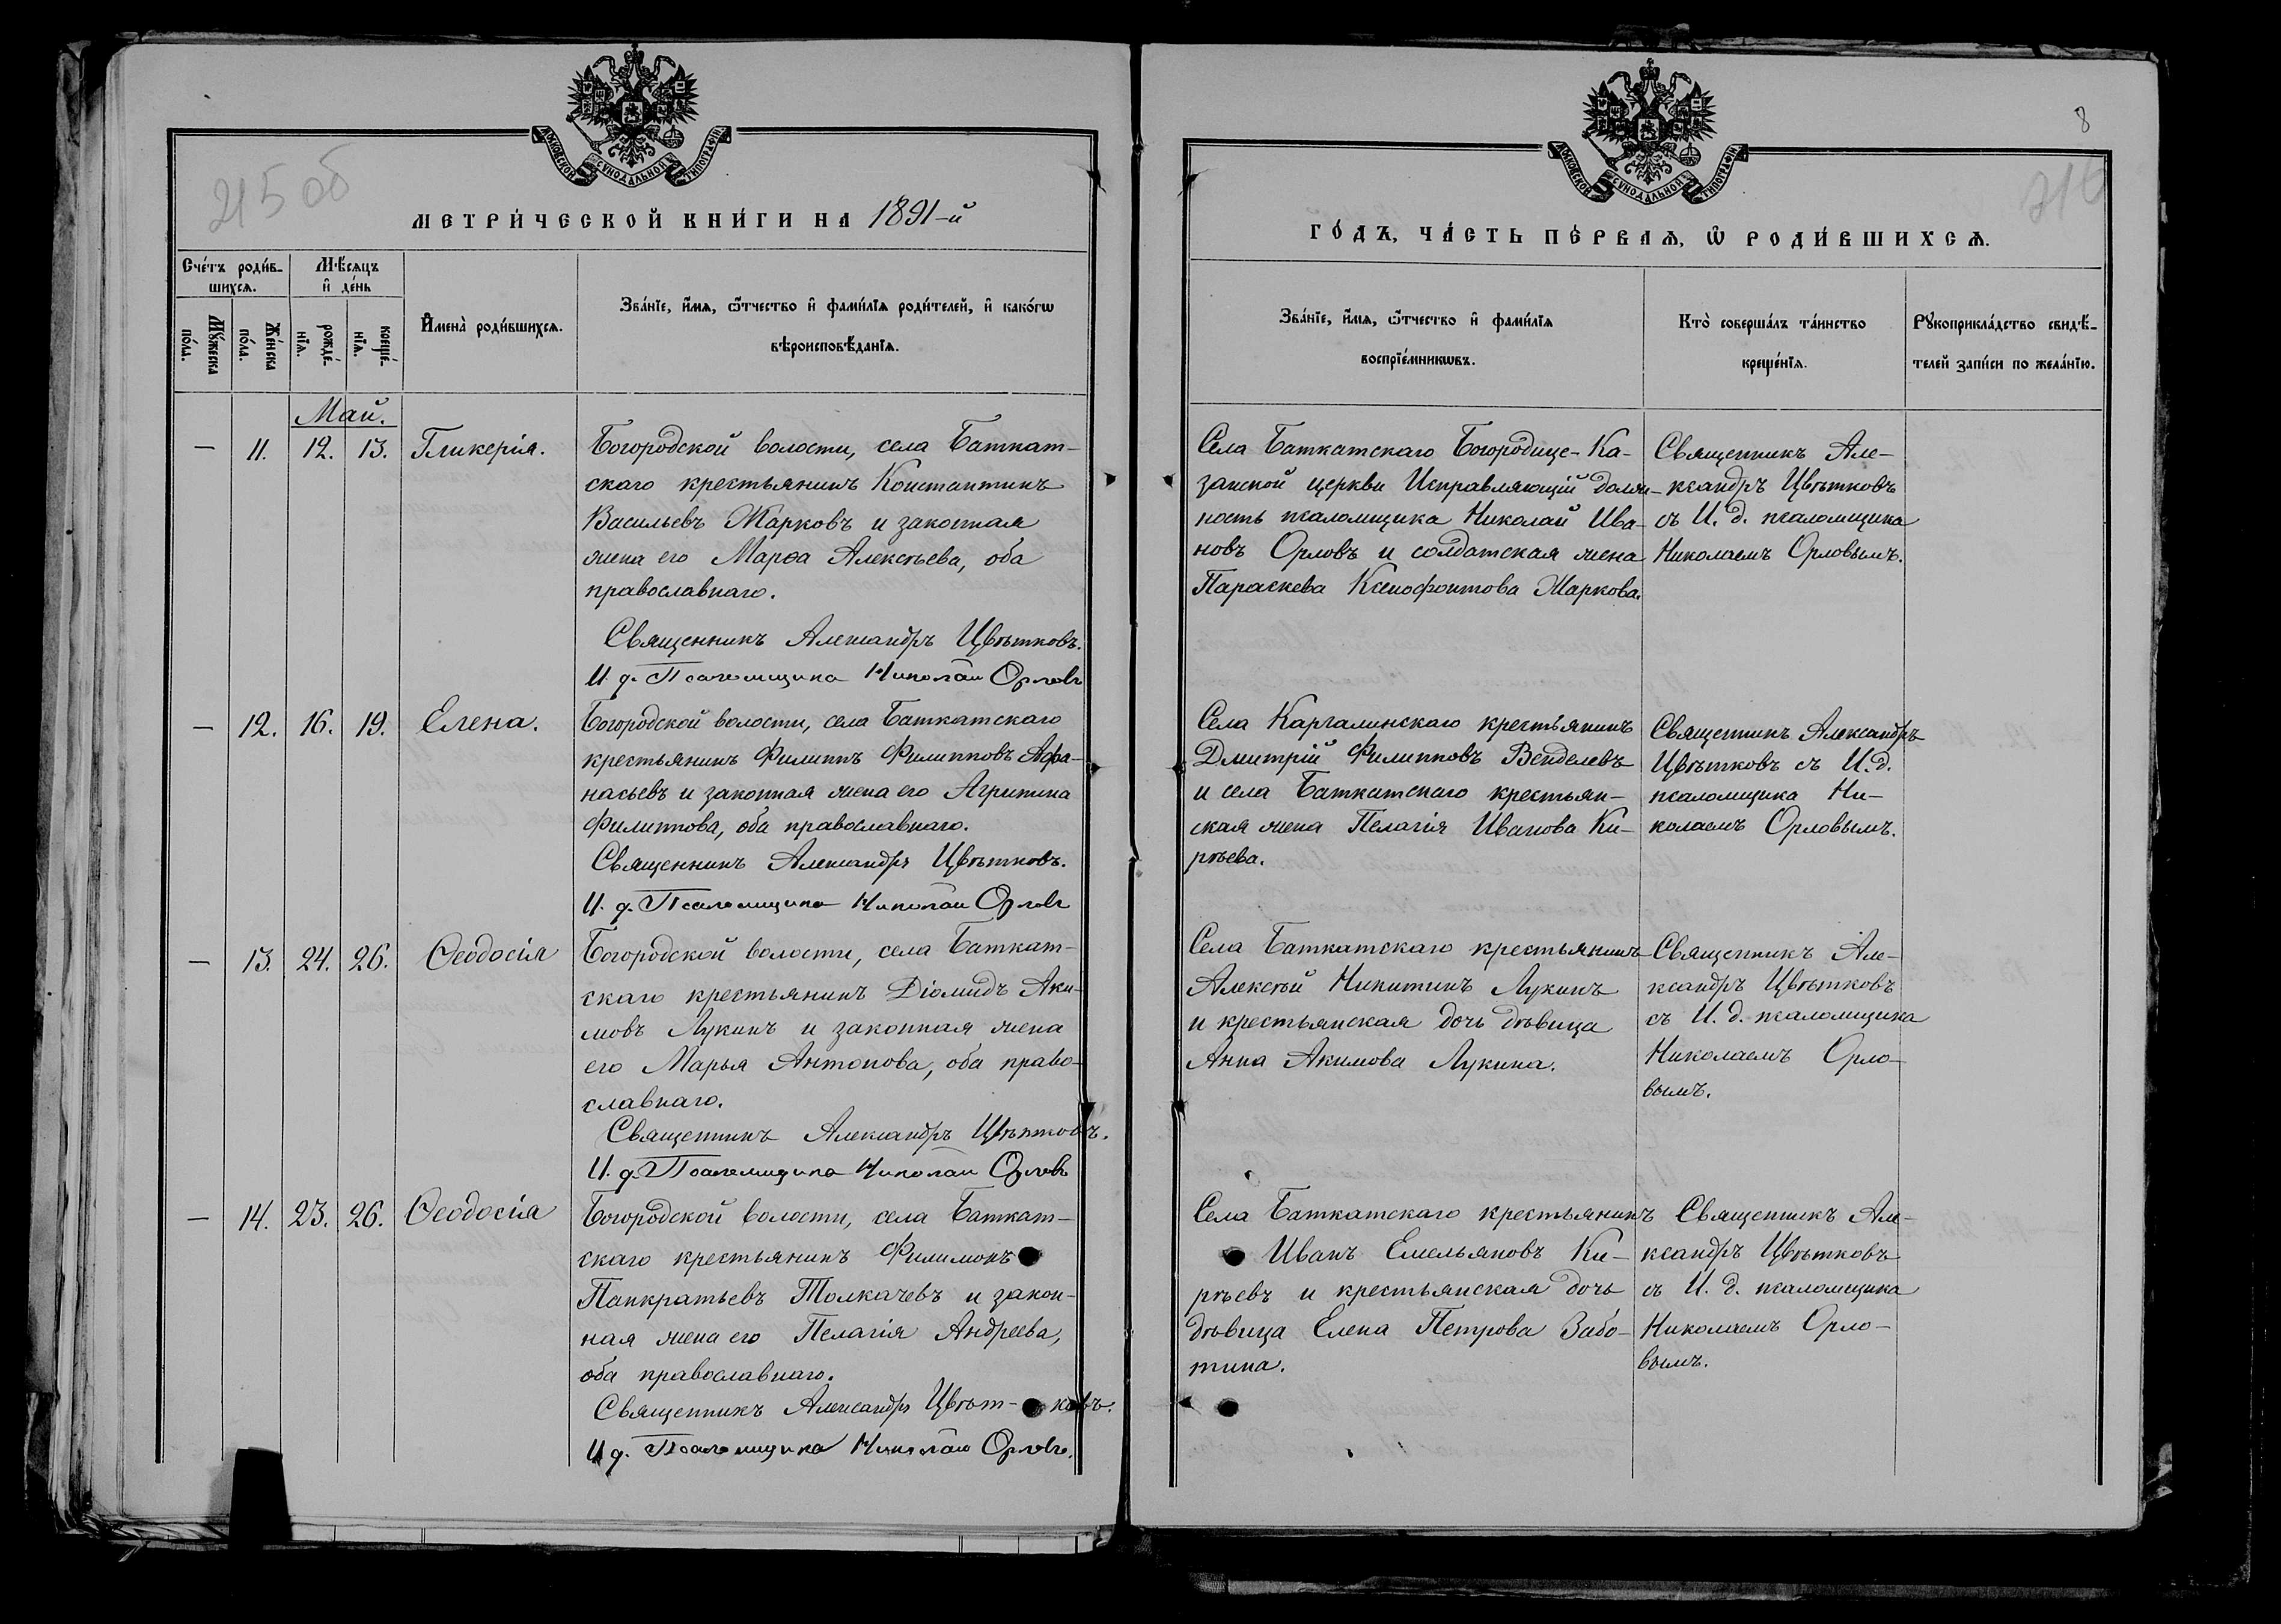 МОСКОВСКОЙ СУНОДАЛЬНОЙ ТИПОГРАФІИ
215 об
МЕТРИ́ЧЕСКОЙ КНИ́ГИ НА 1891-й
Сче́тъ роди́в-
шихсѧ.
Мѣ́сѧцъ
и҆ де́нь
Мꙋ́жеска
по́ла.
Же́нска
по́ла.
рожде́-
нїѧ.
креще́-
нїѧ.
И҆мена̀ роди́вшихсѧ.
Зва́нїе, и҆́мѧ, ѻ҆́тчество и҆ фами́лїѧ роди́телей, и҆ како́гѡ
вѣроисповѣ́данїѧ.
Май.
— 11. 12. 13. Гликерія.
Богородской волости, села Баткат-
скаго крестьянинъ Константинъ
Васильевъ Жарковъ и законная
жена его Марѳа Алексѣева, оба
православнаго.
Священникъ Александръ Цвѣтковъ.
И. д. Псаломщика Николай Орловъ
— 12. 16. 19. Елена.
Богородской волости, села Баткатскаго
крестьянинъ Филиппъ Филипповъ Афа-
насьевъ и законная жена его Агрипина
Филиппова, оба православнаго.
Священникъ Александръ Цвѣтковъ.
И. д. Псаломщика Николай Орловъ
— 13. 24. 26. Ѳеодосія
Богородской волости, села Баткат-
скаго крестьянинъ Діомидъ Аки-
мовъ Лукинъ и законная жена
его Марья Антонова, оба право-
славнаго.
Священникъ Александръ Цвѣтковъ.
И. д. Псаломщика Николай Орловъ
— 14. 23. 26. Ѳеодосія
Богородской волости, села Баткат-
скаго крестьянинъ Филимонъ
Панкратьевъ Толкачевъ и закон-
ная жена его Пелагія Андреева,
оба православнаго.
Священникъ Александръ Цвѣт-ковъ.
И д. Псаломщика Николай Орловъ.
МОСКОВСКОЙ СУНОДАЛЬНОЙ ТИПОГРАФІИ
8
216
ГО́ДЪ, ЧА́СТЬ ПЕ́РВАѦ, Ѡ҆ РОДИ́ВШИХСѦ.
Зва́нїе, и҆́мѧ, ѻ҆́тчество и҆ фами́лїѧ
воспрїе́мникѡвъ.
Кто̀ соверша́лъ та́инство
креще́нїѧ.
Рꙋкоприкла́дство свидѣ́-
телей за́писи по жела́нїю.
Села Баткатскаго Богородице-Ка-
занской церкви Исправляющій долж-
ность псаломщика Николай Ива-
новъ Орловъ и солдатская жена
Параскева Ксенофонтова Жаркова.
Священникъ Але-
ксандръ Цвѣтковъ
съ И. д. псаломщика
Николаемъ Орловымъ.
Села Каргалинскаго крестьянинъ
Дмитрій Филипповъ Венделевъ
и села Баткатскаго крестьян-
ская жена Пелагія Иванова Ки-
рѣева.
Священникъ Александръ
Цвѣтковъ съ И. д.
псаломщика Ни-
колаемъ Орловымъ.
Села Баткатскаго крестьянинъ
Алексѣй Никитинъ Лукинъ
и крестьянская дочь дѣвица
Анна Акимова Лукина.
Священникъ Але-
ксандръ Цвѣтковъ
съ И. д. псаломщика
Николаемъ Орло-
вымъ.
Села Баткатскаго крестьянинъ
Иванъ Емельяновъ Ки-
рѣевъ и крестьянская дочь
дѣвица Елена Петрова Забо-
тина.
Священникъ Але-
ксандръ Цвѣтковъ
съ И. д. псаломщика
Николаемъ Орло-
вымъ.